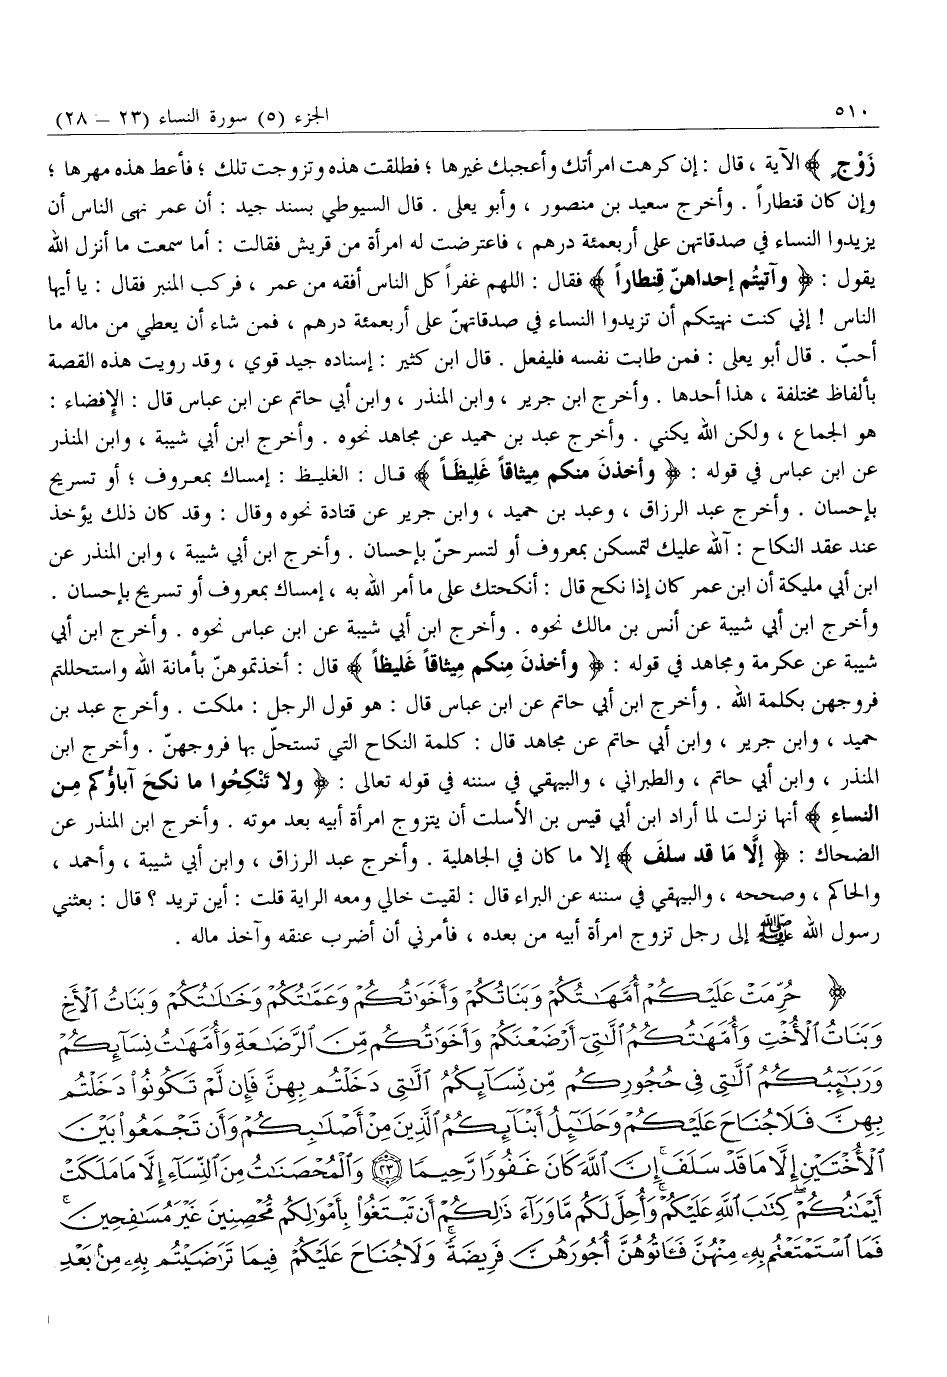 ٥١٠
الجزء (٥) سورة النساء (٢٣ – ٢٨)
زَوْجٍ ﴾ الآية ، قال : إن كرهت امرأتك وأعجبك غيرها ؛ فطلقت هذه وتزوجت تلك ؛ فأعط هذه مهرها ؛
وإن كان قنطاراً . وأخرج سعيد بن منصور ، وأبو يعلى . قال السيوطي بسند جيد : أن عمر نهى الناس أن
يزيدوا النساء في صدقاتهن على أربعمئة درهم ، فاعترضت له امرأة من قريش فقالت : أما سمعت ما أنزل الله
يقول : ﴿ وآتيتُم إحداهنّ قِنطاراً ﴾ فقال : اللهم غفراً كل الناس أفقه من عمر ، فركب المنبر فقال : يا أيها
الناس ! إني كنت نهيتكم أن تزيدوا النساء في صدقاتهنّ على أربعمئة درهم ، فمن شاء أن يعطي من ماله ما
أحبّ . قال أبو يعلى : فمن طابت نفسه فليفعل . قال ابن كثير : إسناده جيد قوي ، وقد رويت هذه القصة
بألفاظ مختلفة ، هذا أحدها . وأخرج ابن جرير ، وابن المنذر ، وابن أبي حاتم عن ابن عباس قال : الإفضاء :
هو الجماع ، ولكن الله يكني . وأخرج عبد بن حميد عن مجاهد نحوه . وأخرج ابن أبي شيبة ، وابن المنذر
عن ابن عباس في قوله : ﴿ وأخذنَ منكم مِيثاقاً غَلِيظَاً ﴾ قال : الغليظ : إمساك بمعروف ؛ أو تسريح
بإحسان . وأخرج عبد الرزاق ، وعبد بن حميد ، وابن جرير عن قتادة نحوه وقال : وقد كان ذلك يؤخذ
عند عقد النكاح : آلله عليك لتمسكن بمعروف أو لتسرحنّ بإحسان . وأخرج ابن أبي شيبة ، وابن المنذر عن
ابن أبي مليكة أن ابن عمر كان إذا نكح قال : أنكحتك على ما أمر الله به ، إمساك بمعروف أو تسريح بإحسان .
وأخرج ابن أبي شيبة عن أنس بن مالك نحوه . وأخرج ابن أبي شيبة عن ابن عباس نحوه . وأخرج ابن أبي
شيبة عن عكرمة ومجاهد في قوله : ﴿ وأخذنَ مِنكم مِيثاقاً غَليظاً ﴾ قال : أخذتموهنّ بأمانة الله واستحللتم
فروجهن بكلمة الله . وأخرج ابن أبي حاتم عن ابن عباس قال : هو قول الرجل : ملكت . وأخرج عبد بن
حميد ، وابن جرير ، وابن أبي حاتم عن مجاهد قال : كلمة النكاح التي تستحلّ بها فروجهنّ . وأخرج ابن
المنذر ، وابن أبي حاتم ، والطبراني ، والبيهقي في سننه في قوله تعالى : ﴿ ولا تَنْكِحُوا ما نكحَ آباؤُكم مِـن
النساءِ ﴾ أنها نزلت لما أراد ابن أبي قيس بن الأسلت أن يتزوج امرأة أبيه بعد موته . وأخرج ابن المنذر عن
الضحاك : ﴿ إلَّا مَا قد سلفَ ﴾ إلا ما كان في الجاهلية . وأخرج عبد الرزاق ، وابن أبي شيبة ، وأحمد ،
والحاكم ، وصححه ، والبيهقي في سننه عن البراء قال : لقيت خالي ومعه الراية قلت : أين تريد ؟ قال : بعثني
رسول الله ﷺ إلى رجل تزوج امرأة أبيه من بعده ، فأمرني أن أضرب عنقه وآخذ ماله .
﴿ حُرِّمَتْ عَلَيْكُمْ أُمَّهَٰتُكُمْ وَبَنَاتُكُمْ وَأَخَوَٰتُكُمْ وَعَمَّٰتُكُمْ وَخَٰلَٰتُكُمْ وَبَنَاتُ ٱلْأَخِ
وَبَنَاتُ ٱلْأُخْتِ وَأُمَّهَٰتُكُمُ ٱلَّٰتِىٓ أَرْضَعْنَكُمْ وَأَخَوَٰتُكُم مِّنَ ٱلرَّضَٰعَةِ وَأُمَّهَٰتُ نِسَآئِكُمْ
وَرَبَٰٓئِبُكُمُ ٱلَّٰتِى فِى حُجُورِكُم مِّن نِّسَآئِكُمُ ٱلَّٰتِى دَخَلْتُم بِهِنَّ فَإِن لَّمْ تَكُونُوا۟ دَخَلْتُم
بِهِنَّ فَلَا جُنَاحَ عَلَيْكُمْ وَحَلَٰٓئِلُ أَبْنَآئِكُمُ ٱلَّذِينَ مِنْ أَصْلَٰبِكُمْ وَأَن تَجْمَعُوا۟ بَيْنَ
ٱلْأُخْتَيْنِ إِلَّا مَا قَدْ سَلَفَ ۗ إِنَّ ٱللَّهَ كَانَ غَفُورًا رَّحِيمًا ﴿٢٣﴾ وَٱلْمُحْصَنَٰتُ مِنَ ٱلنِّسَآءِ إِلَّا مَا مَلَكَتْ
أَيْمَٰنُكُمْ ۖ كِتَٰبَ ٱللَّهِ عَلَيْكُمْ ۚ وَأُحِلَّ لَكُم مَّا وَرَآءَ ذَٰلِكُمْ أَن تَبْتَغُوا۟ بِأَمْوَٰلِكُم مُّحْصِنِينَ غَيْرَ مُسَٰفِحِينَ ۚ
فَمَا ٱسْتَمْتَعْتُم بِهِۦ مِنْهُنَّ فَـَٔاتُوهُنَّ أُجُورَهُنَّ فَرِيضَةً ۚ وَلَا جُنَاحَ عَلَيْكُمْ فِيمَا تَرَٰضَيْتُم بِهِۦ مِنۢ بَعْدِ